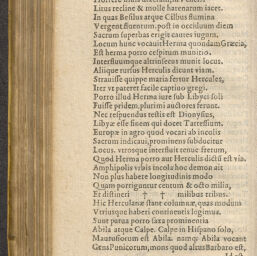 Litus recline & molle harenarum iacet.
In quas Besilus atque Cilbus flumina
Vergent fluentum, post in occiduum diem
Sacrum superbas erigit cautes iugum.
Locum hunc vocauit Herma quondam Græcia,
Est herma porro cespitum munitio.
Interfluumque altrinsecus munit locus.
Aliique rursus Herculis dicunt viam.
Strauisse quippe maria fertur Hercules,
Iter vt pateret facile captiuo gregi.
Porro illud Herma iure sub Libyci soli
Fuisse pridem, plurimi auctores ferunt.
Nec respuendus testis est Dionysius,
Libyæ esse finem qui docet Tartessum.
Europæ in agro quod vocari ab incolis
Sacrum indicaui, prominens subducitur
Locus. vtrosque interfluit tenue fretum,
Quod Herma porro aut Herculis dictū est via.
Amphipolis vrbis incola hoc demon ait
Non plus habere longitudinis modo
Quam porriguntur centum & octo milia,
Et distineri † † † milibus tribus.
Hic Herculanæ stant columnæ, quas modum
Vtriusque haberi continentis legimus.
Sunt parua porro saxa prominentia
Abila atque Calpe. Calpe in Hispano solo,
Maurusiorum est Abila. namq; Abila vocant
Gens Punicorum, mons quod altus Barbaro est,